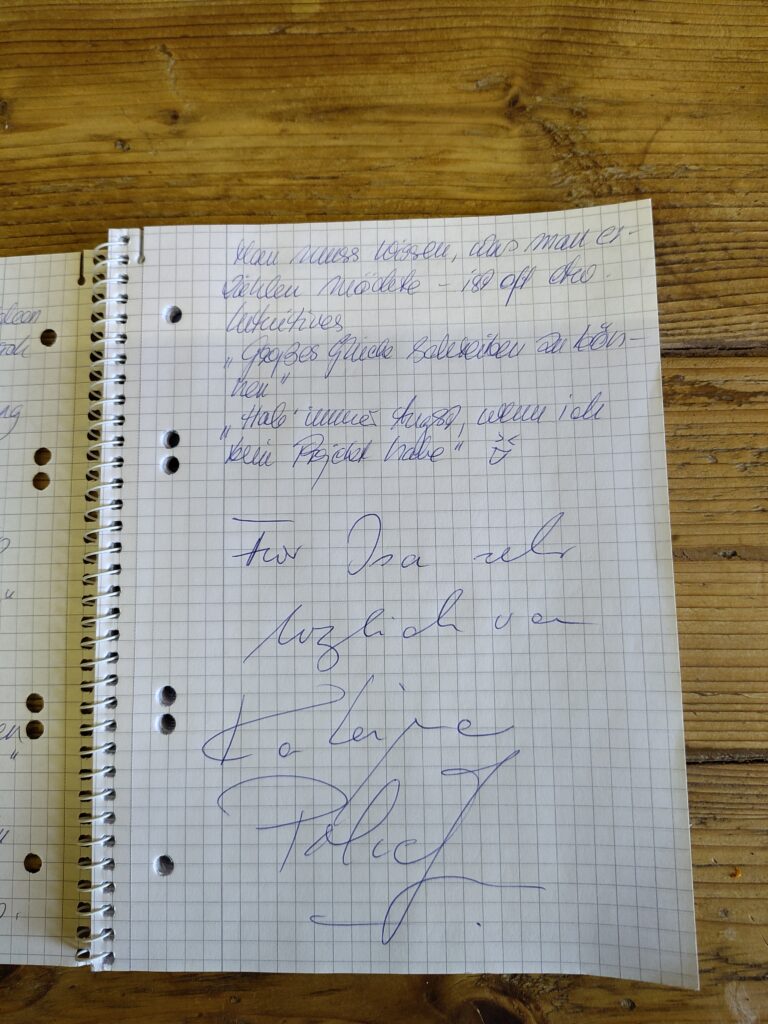 Man muss wissen, was man er-
zählen möchte – ist oft etw.
Intuitives
„Großes Glück schreiben zu kön-
nen"
„Hab' immer Angst, wenn ich
kein Projekt habe"
Für Isa sehr
herzlich von
Katerina
en
"